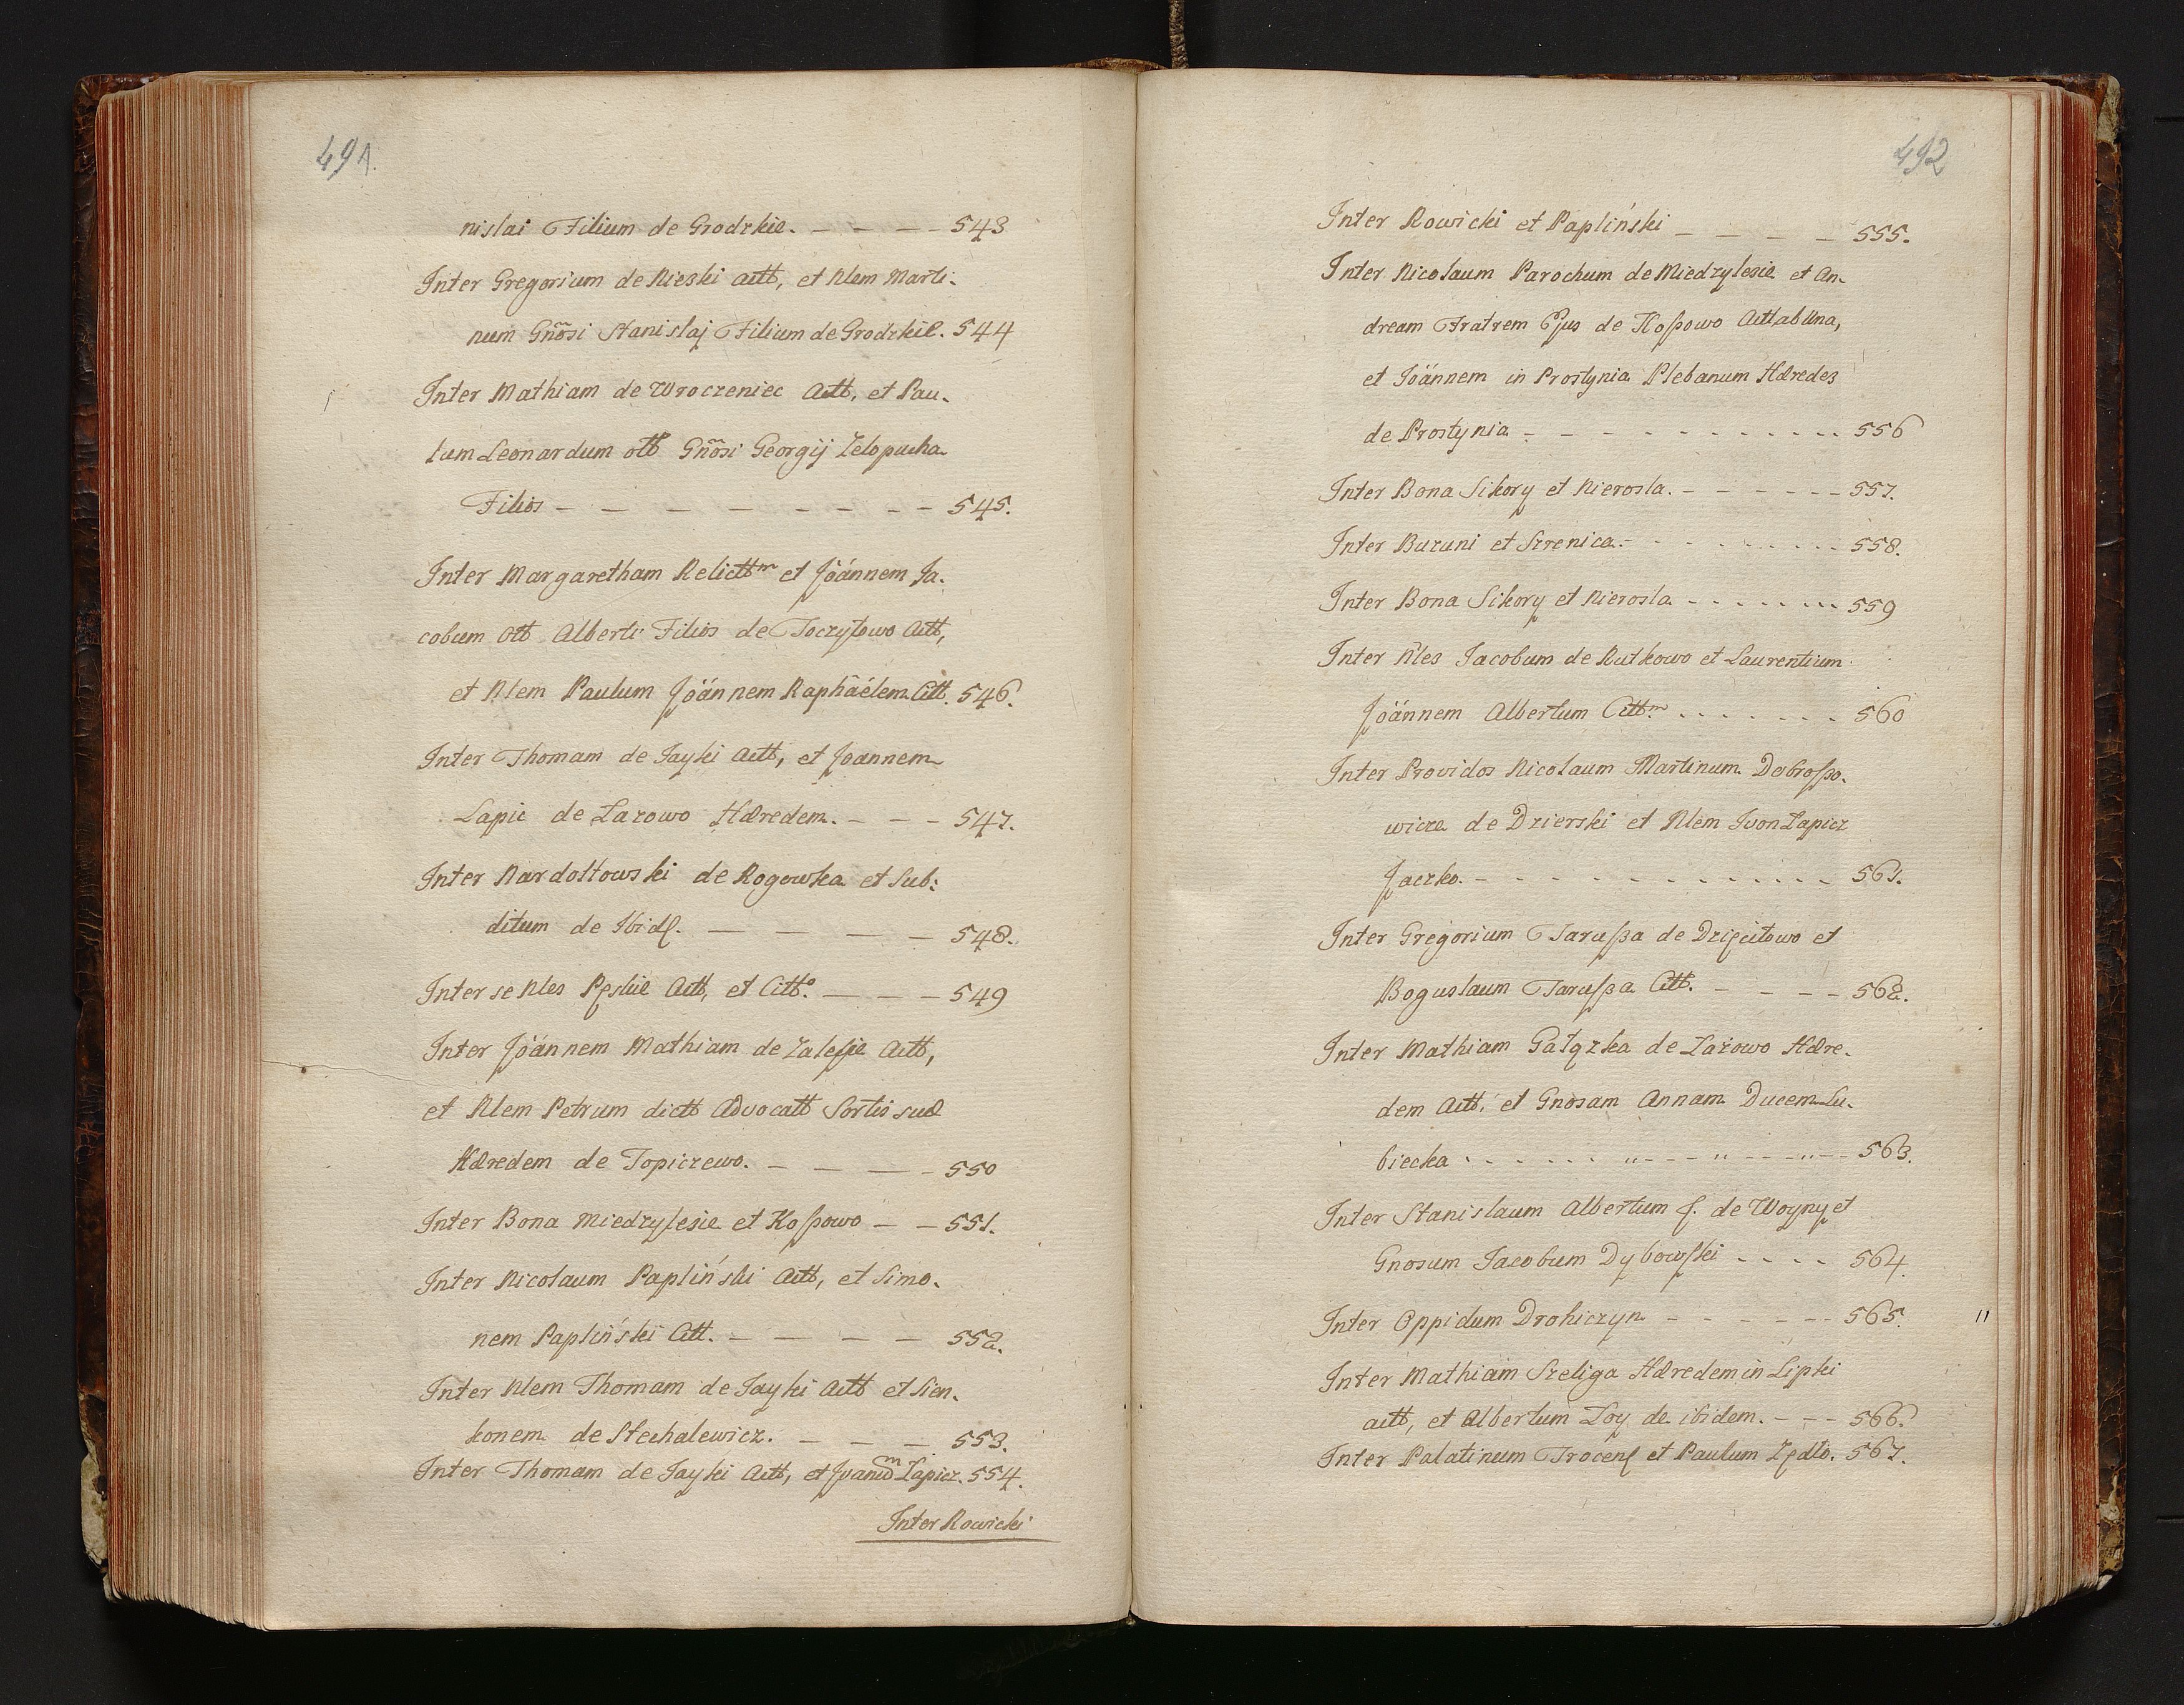 491.
nislai Filium de Grodzkie. — — — — 543
Inter Gregorium de Nieski Actt, et Nlem Marti-
num Gnõsi Stanislaj Filium de Grodzkie. 544
Inter Mathiam de Wroczeniec Actt, et Pau-
lum Leonardum ott Gnõsi Georgij Zelopucha
Filios — — — — — — — — — 545.
Inter Margaretham Relicttm et Joännem Ja-
cobum ott Alberti Filios de Toczyłowo Actt,
et Nlem Paulum Joännem Raphäélem Citt. 546.
Inter Thomam de Jayki Actt, et Joannem
Lapic de Lazowo Hæredem. — — — 547.
Inter Nardołtowski de Rogowka et Sub-
ditum de Ibid. — — — — — 548.
Inter se Nles Pęskie Actt, et Citto. — — — 549
Inter Joännem Mathiam de Zalesie Actt,
et Nlem Petrum dictt Advocatt Sortis suæ
Hæredem de Topiczewo. — — — — 550
Inter Bona Miedzylesie et Koßowo — — 551.
Inter Nicolaum Papliński Actt, et Simo-
nem Papliński Citt. — — — — — 552.
Inter Nlem Thomam de Jayki Actt et Sien-
konem de Stechalewicz. — — — 553.
Inter Thomam de Jayki Actt, et Lapicz. 554.
Inter Rowicki
492
Inter Rowicki et Papliński — — — — 555.
Inter Nicolaum Parochum de Miedzylesie et An-
dream Fratrem Ejus de Koßowo Actt ab Una,
et Joännem in Prostynia Plebanum Hæredes
de Prostynia - - - - - - - - - - - - 556
Inter Bona Sikory et Nierosla. - - - - - - 557.
Inter Buzuni et Szrenica. - - - - - - - - 558.
Inter Bona Sikory et Nierosla - - - - - - - 559
Inter Nles Jacobum de Rutkowo et Laurentium
Joännem Albertum Cittm. . . . . . . . 560
Inter Providos Nicolaum Martinum Dobroßo-
wicze de Dzierski et Nlem Ivon Lapicz
Jaczko. - - - - - - - - - - - - - 561.
Inter Gregorium Tarußa de Dzięciłowo et
Boguslaum Tarußa Citt. - - - - - 562.
Inter Mathiam Gałązka de Lazowo Hære-
dem Actt. et Gnosam Annam Ducem Lu-
biecka . . . . . . „ - - - „ - - - „ - - 563.
Inter Stanislaum Albertum f. de Woyny et
Gnosum Jacobum Dybowski - - - - 564.
Inter Oppidum Drohiczyn - - - - - - - 565.
Inter Mathiam Szeliga Hæredem in Lipki
actt, et Albertum Loy de ibidem. - - - 566.
Inter Palatinum Trocens et Paulum 567.